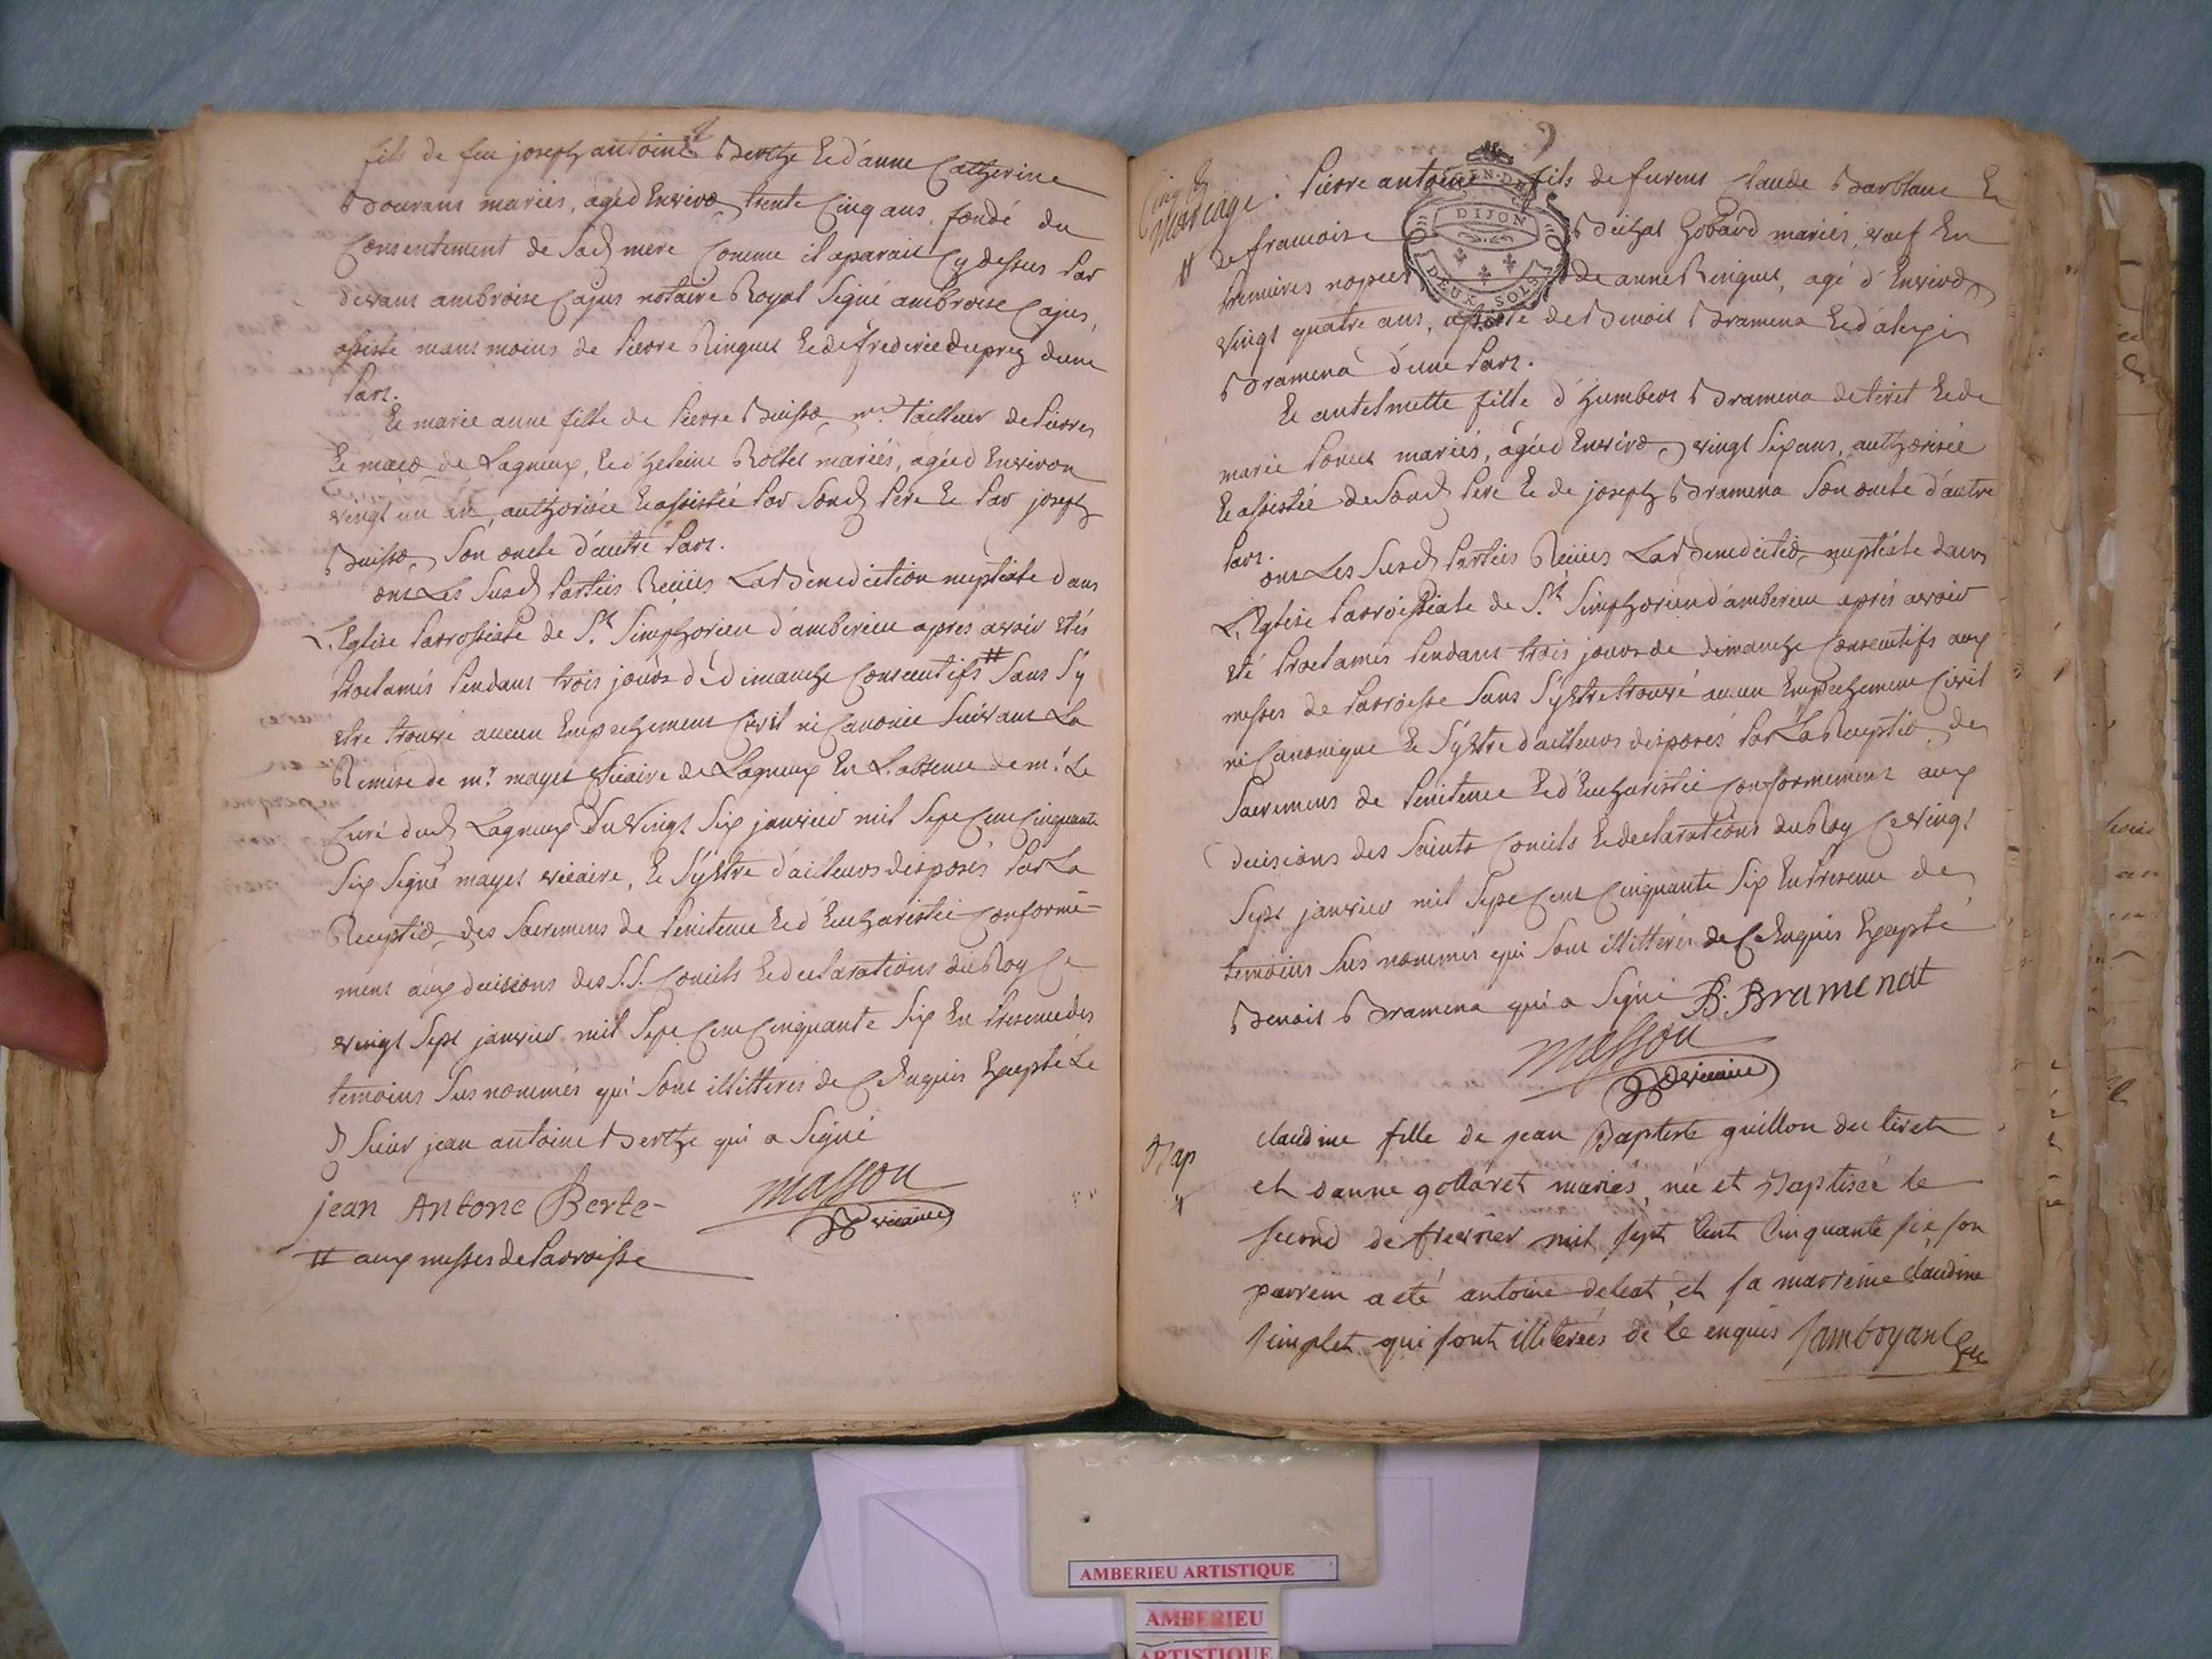 fils de feu joseph antoine Berthe et d'anne Catherine
mariés, agé d'environ trente Cinq ans, fondé du
Consentement de Sad. mere Comme il aparait Cy dessus Par
devant ambroise Cajus notaire Royal Signé ambroise Cajus,
assisté de Pierre Ringuet et de frederic dupres d'une
Part.
Et marie anne fille de Pierre Buisson md. tailleur de Pierres
de Lagneux, et d'heleine mariés, agée d'Environ
vingt un an, authorisée et assistée Par Sond. Pere et Par joseph
Buisson Son oncle d'autre Part.
ont Les Susd. Parties Reçües La Benediction nuptiale dans
L'Eglise Parrossiale de St. Simphorien d'amberieu apres avoir étés
Proclamés Pendant trois jours de dimanche Consecutifs # Sans S'y
etre trouvé aucun Empechement Civil ni Canonic Suivant La
Remise de mr. mayet vicaire de Lagneux En L'absence de mr. Le
Curé dud. Lagneux Du vingt Six janvier mil Sept Cent Cinquante
Six Signé mayet vicaire, Et S'y Etre d'ailleurs disposés Par La
Reception des Sacremens de Penitence Et d'Eucharistie Conforme-
ment aux decisions des S.S. Concils Et declarations du Roy Ce
vingt Sept janvier mil Sept Cent Cinquante Six En Presence des
temoins Sus nommés qui Sont illitterés de Ce Enquis Excepté Le
d. Sieur jean antoine Berthe qui a Signé
jean Antone Berte
masson
vicaire
# aux messes de Parroisse
Mariage. Pierre antoine fils de furent Claude Barblanc Et
# de francoise Buchat Gobard mariés, veuf En
GEN. DE DIJON
DEUX SOLS
Premieres nopces de anne Ringuet, agé d'Environ
vingt quatre ans, assisté de Benoit Bramena Et d'alexis
Bramena d'une Part.
Et antelmette fille d'humbert Bramena de tiret Et de
marie Poncet mariés, agée d'Environ vingt Six ans, authorisée
Et assistée de Sond. Pere Et de joseph Bramena Son oncle d'autre
Part.
ont Les Susd. Parties Reçües La Benediction nuptiale dans
L'Eglise Parroissiale de St. Simphorien d'amberieu aprés avoir
eté Proclamés Pendant trois jours de dimanche Consecutifs aux
messes de Parroisse Sans S'y Etre trouvé aucun Empechement Civil
ni Canonique Et S'y Etre d'ailleurs disposés Par La Reception des
Sacremens de Penitence Et d'Eucharistie Conformement aux
decisions des Saints Concils Et declarations du Roy Ce vingt
Sept janvier mil Sept Cent Cinquante Six En Presence des
temoins Sus nommés qui Sont illitterés de Ce Enquis Excepté
Benoit Bramena qui a Signé B. Bramenat
masson
vicaire
Bap
#
claudine fille de jean Baptiste guillon du tiret
et d'anne gottaret mariés, née et Baptisée le
second de fevrier mil sept cent cinquante six, son
parrein a eté antoine deleat, et sa marreine claudine
simplet qui sont illiterés de ce enquis Jamboyant
AMBERIEU ARTISTIQUE
AMBERIEU
ARTISTIQUE